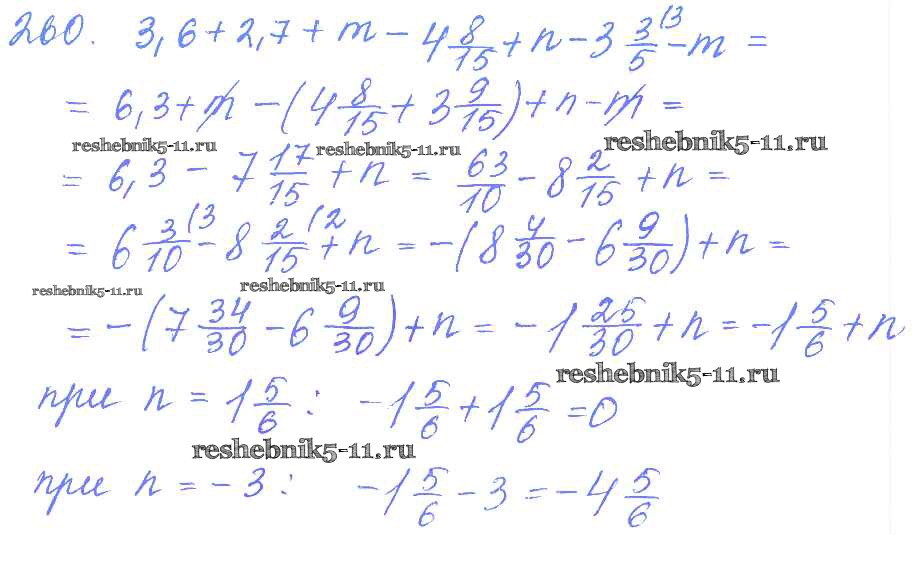 260. 3,6 + 2,7 + m − 4 8/15 + n − 3 3/5 (3 − m =
= 6,3 + m − (4 8/15 + 3 9/15) + n − m =
reshebnik5-11.ru reshebnik5-11.ru reshebnik5-11.ru
= 6,3 − 7 17/15 + n = 63/10 − 8 2/15 + n =
= 6 3/10 (3 − 8 2/15 (2 + n = −(8 4/30 − 6 9/30) + n =
reshebnik5-11.ru reshebnik5-11.ru
= −(7 34/30 − 6 9/30) + n = −1 25/30 + n = −1 5/6 + n
reshebnik5-11.ru
при n = 1 5/6 : −1 5/6 + 1 5/6 = 0
reshebnik5-11.ru
при n = −3 : −1 5/6 − 3 = −4 5/6